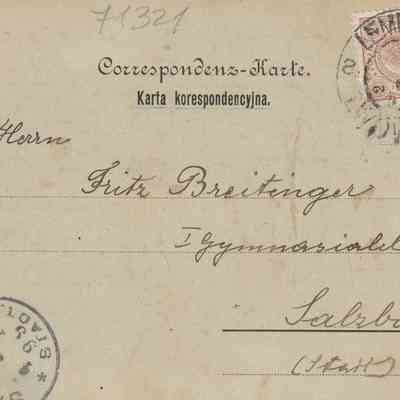 71321
Correspondenz-Karte.
Karta korespondencyjna.
Herrn
Fritz Breitinger
I Gymnasialkl
Salzbu
(Stadt)